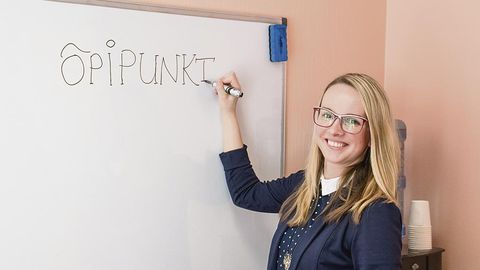 õpipunkt